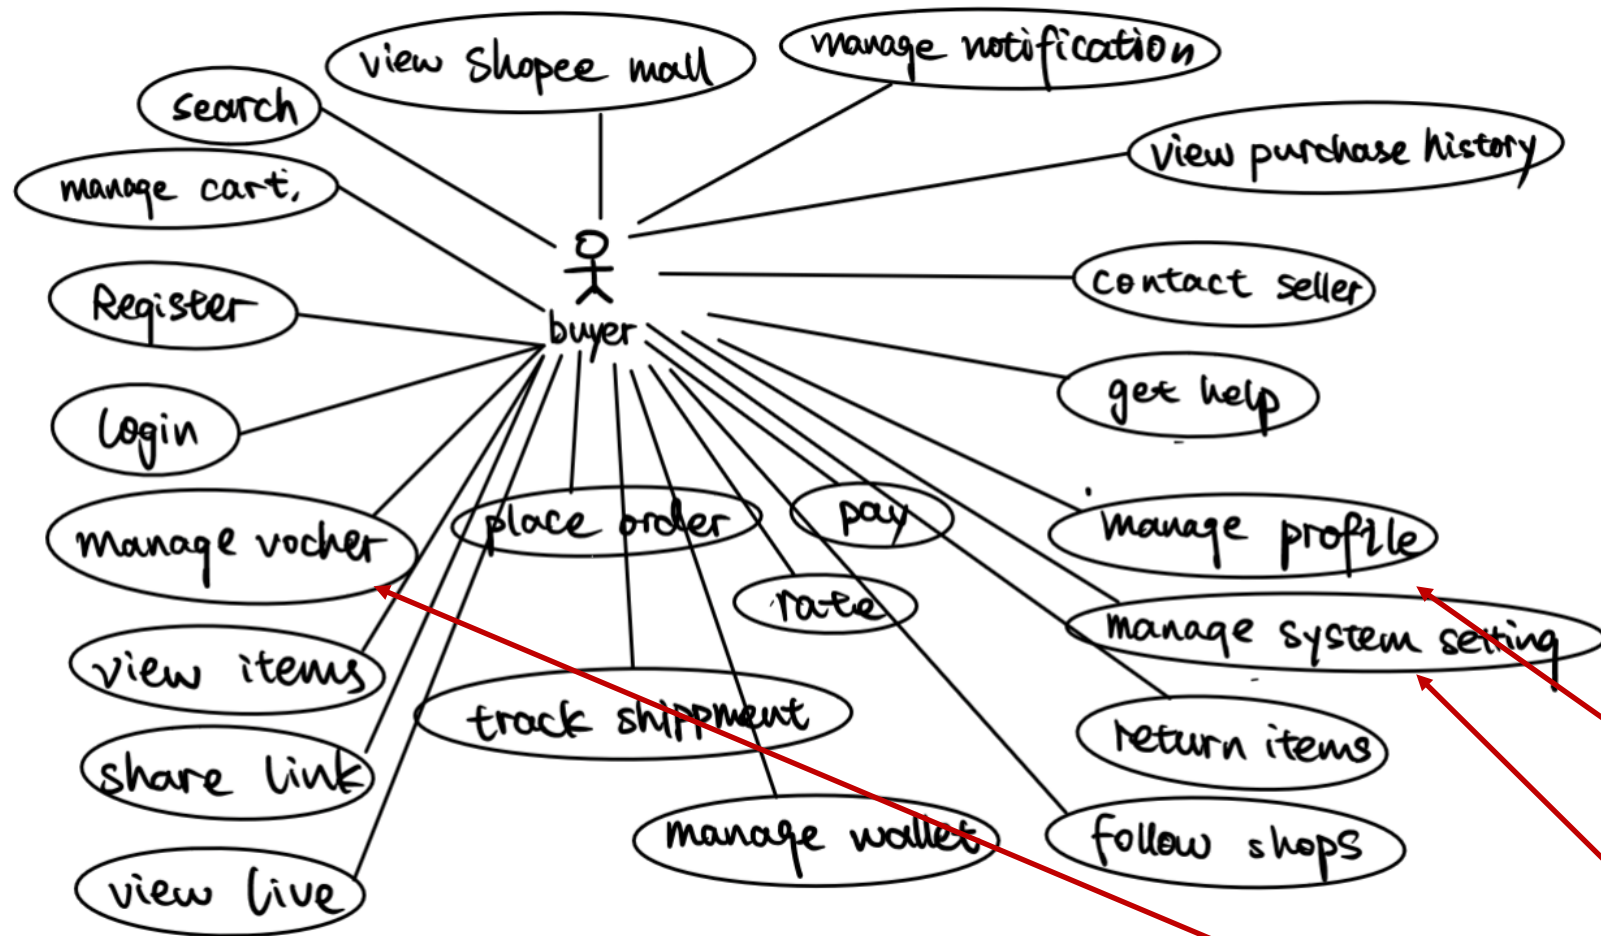 view Shopee mall
manage notification
search
view purchase history
manage cart.
contact seller
Register
buyer
get help
login
place order
pay
manage profile
manage vocher
rate
manage system setting
view items
track shippment
return items
share link
manage wallet
follow shops
view live